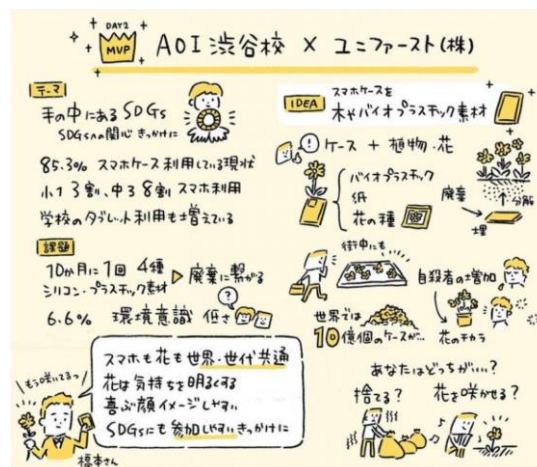 DAY2
MVP
AOI 渋谷校 × ユニファースト(株)
テーマ
手の中にあるSDGs
SDGsへの関心 きっかけに
85.3% スマホケース利用している現状
小1 3割、中3 8割 スマホ利用
学校のタブレット利用も増えている
課題
10か月に1回 4種
シリコン・プラスチック素材
廃棄に繋がる
6.6% 環境意識 低さ
?
スマホも花も世界・世代共通
花は気持ちを明るくする
喜ぶ顔イメージしやすい
SDGsにも参加しやすいきっかけに
もう咲いてるっ
橋本さん
IDEA
スマホケースを
木やバイオプラスチック素材
!
ケース + 植物・花
バイオプラスチック
紙
花の種
廃棄
分解
埋
街中にも
自殺者の増加
世界では
10億個のケースが…
花のチカラ
あなたはどっちがいい?
捨てる?
花を咲かせる?